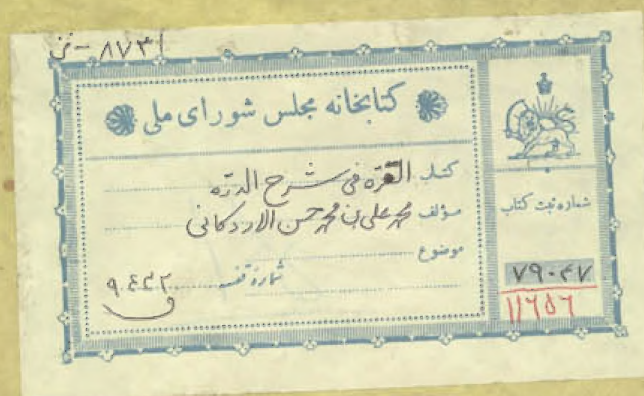 ۸۷۳۱ - ن
کتابخانه مجلس شورای ملی
کتاب القره فی شرح الدره
مؤلف محمد علی بن محمد حسن الاردکانی
موضوع
شماره قفسه ۹۴۲۲
شماره ثبت کتاب
۷۹۰۴۷
۱۱۶۵۶